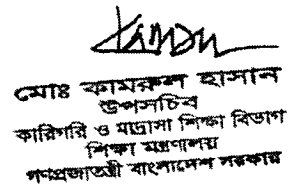 মোঃ কামরুল হাসান
উপসচিব
কারিগরি ও মাদ্রাসা শিক্ষা বিভাগ
শিক্ষা মন্ত্রণালয়
গণপ্রজাতন্ত্রী বাংলাদেশ সরকার